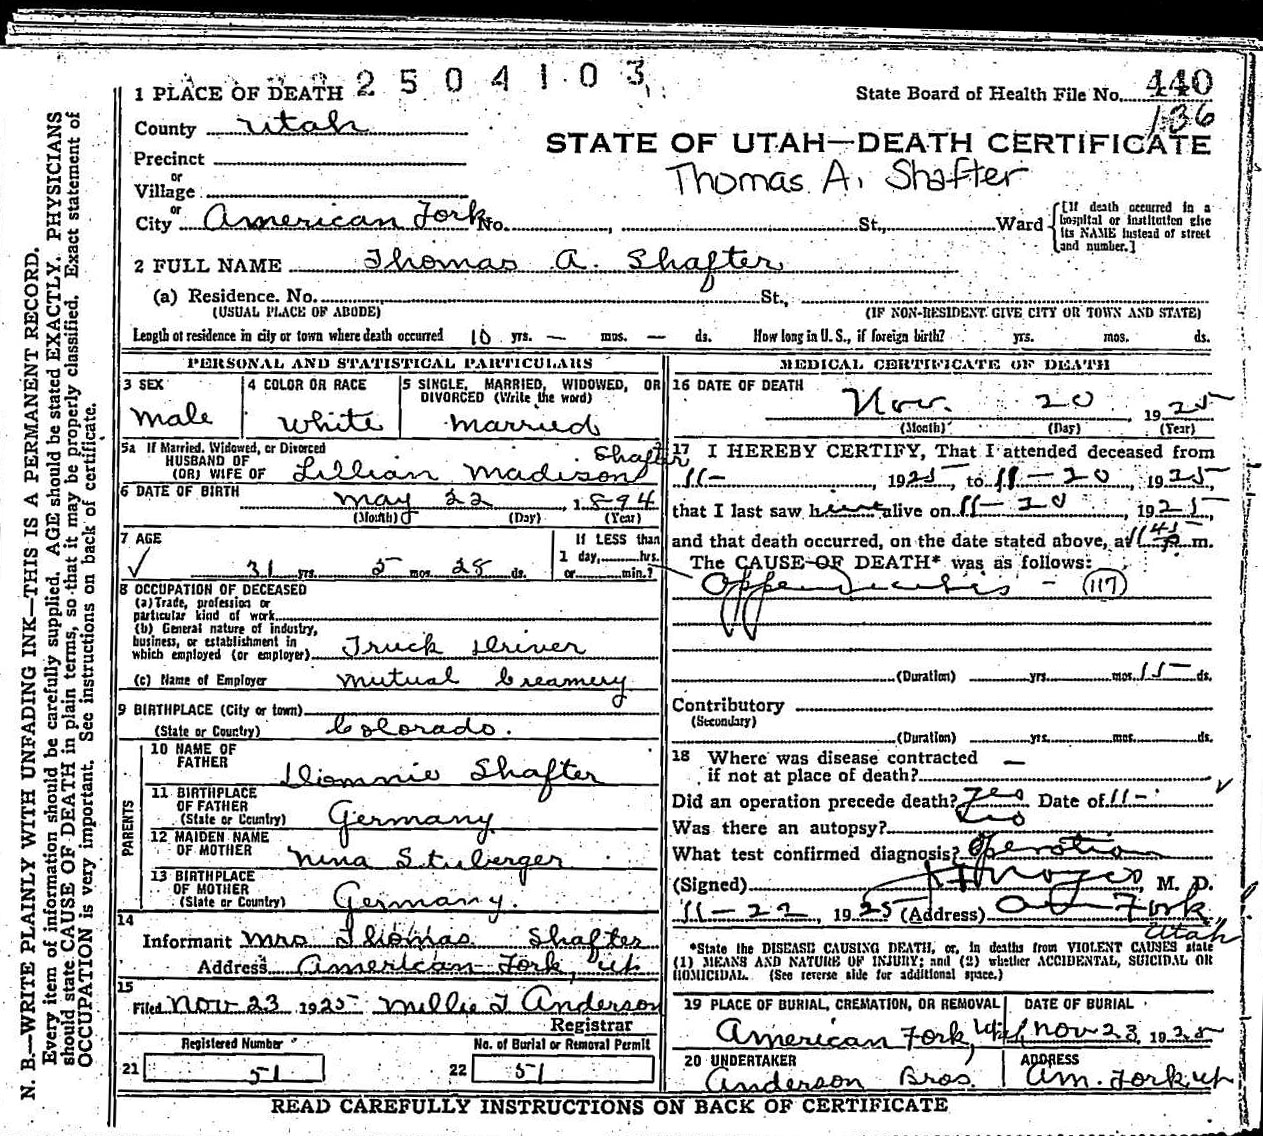 2504103
1 PLACE OF DEATH
State Board of Health File No. 440
136
County Utah
STATE OF UTAH—DEATH CERTIFICATE
Precinct
Thomas A. Shafter
or
Village
or
City American Fork No. , St., Ward
[If death occurred in a
hospital or institution give
its NAME instead of street
and number.]
2 FULL NAME Thomas A. Shafter
(a) Residence. No. St.,
(USUAL PLACE OF ABODE) (IF NON-RESIDENT GIVE CITY OR TOWN AND STATE)
Length of residence in city or town where death occurred 10 yrs. — mos. — ds. How long in U. S., if foreign birth? yrs. mos. ds.
PERSONAL AND STATISTICAL PARTICULARS
3 SEX
Male
4 COLOR OR RACE
White
5 SINGLE, MARRIED, WIDOWED, OR
DIVORCED (Write the word)
Married
5a If Married, Widowed, or Divorced
HUSBAND OF
(OR) WIFE OF Lillian Madison Shafter
6 DATE OF BIRTH May 22, 1894
(Month) (Day) (Year)
7 AGE
✓ 31 yrs. 5 mos. 28 ds.
If LESS than
1 day, hrs.
or min.?
8 OCCUPATION OF DECEASED
(a) Trade, profession or
particular kind of work
(b) General nature of industry,
business, or establishment in
which employed (or employer) Truck Driver
(c) Name of Employer Mutual Creamery
9 BIRTHPLACE (City or town)
(State or Country) Colorado.
PARENTS
10 NAME OF
FATHER Shafter
11 BIRTHPLACE
OF FATHER
(State or Country) Germany
12 MAIDEN NAME
OF MOTHER Nina
13 BIRTHPLACE
OF MOTHER
(State or Country) Germany.
14
Informant Mrs Thomas Shafter
Address American Fork, Ut
15
Filed Nov 23 1925 Millie T Anderson
Registrar
Registered Number No. of Burial or Removal Permit
21 51 22 51
MEDICAL CERTIFICATE OF DEATH
16 DATE OF DEATH
Nov. 20 1925
(Month) (Day) (Year)
17 I HEREBY CERTIFY, That I attended deceased from
11- , 1925, to 11-20, 1925,
that I last saw him alive on 11-20, 1925,
and that death occurred, on the date stated above, at 11 45 m.
The CAUSE OF DEATH* was as follows:
Appendicitis - (117)
(Duration) yrs. mos. 15 ds.
Contributory
(Secondary)
(Duration) yrs. mos. ds.
18 Where was disease contracted
if not at place of death? —
Did an operation precede death? Yes Date of 11-
Was there an autopsy? No
What test confirmed diagnosis? Operation
(Signed) Noyes, M. D.
11-22, 1925 (Address) Am Fork
Utah
*State the DISEASE CAUSING DEATH, or, in deaths from VIOLENT CAUSES state
(1) MEANS AND NATURE OF INJURY; and (2) whether ACCIDENTAL, SUICIDAL OR
HOMICIDAL. (See reverse side for additional space.)
19 PLACE OF BURIAL, CREMATION, OR REMOVAL
American Fork, Utah
DATE OF BURIAL
Nov 23, 1925
20 UNDERTAKER
Anderson Bros.
ADDRESS
Am. Fork, Ut
READ CAREFULLY INSTRUCTIONS ON BACK OF CERTIFICATE
N. B.—WRITE PLAINLY WITH UNFADING INK—THIS IS A PERMANENT RECORD.
Every item of information should be carefully supplied. AGE should be stated EXACTLY. PHYSICIANS
should state CAUSE OF DEATH in plain terms, so that it may be properly classified. Exact statement of
OCCUPATION is very important. See instructions on back of certificate.